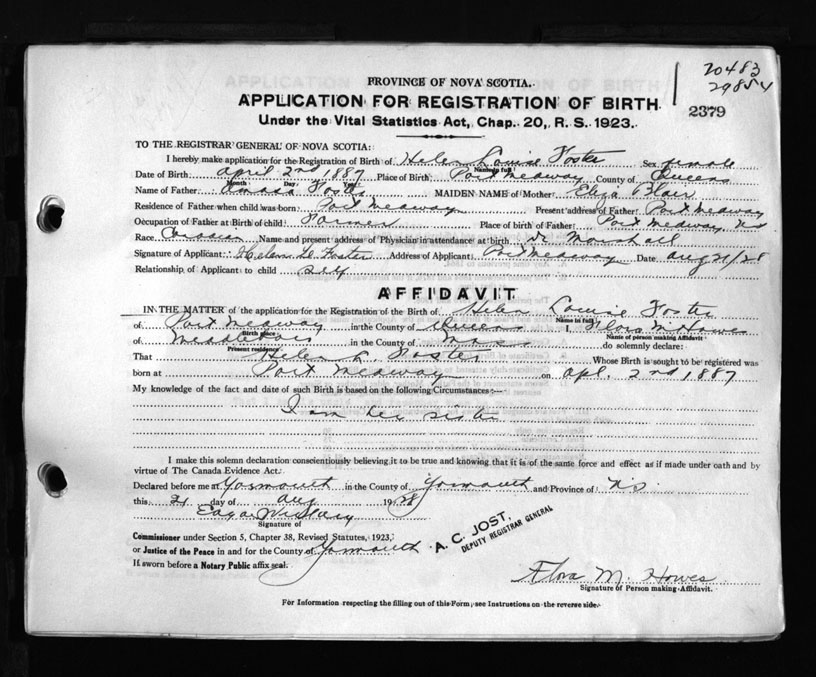 20483
29854
2379
PROVINCE OF NOVA SCOTIA.
APPLICATION FOR REGISTRATION OF BIRTH
Under the Vital Statistics Act, Chap. 20, R. S. 1923.
TO THE REGISTRAR GENERAL OF NOVA SCOTIA:
I hereby make application for the Registration of Birth of Helen Louise Foster Sex female
Name in full
Date of Birth April 2nd 1887 Place of Birth Port Medway County of Queens
Month Day Year
Name of Father Foster MAIDEN NAME of Mother: Eliza Blair
Residence of Father when child was born: Port Medway Present address of Father: Port Medway
Occupation of Father at Birth of child Farmer Place of birth of Father: Port Medway, N.S
Race Name and present address of Physician in attendance at birth Dr Marshall
Signature of Applicant: Helen L. Foster Address of Applicant Port Medway Date Aug 21/28
Relationship of Applicant to child self
AFFIDAVIT
IN THE MATTER of the application for the Registration of the Birth of Helen Louise Foster
Name in full
of Port Medway in the County of Queens I, Flora M Howes
Birth place Name of person making Affidavit
of Middleboro in the County of Mass do solemnly declare:
Present residence
That Helen L. Foster Whose Birth is sought to be registered was
born at Port Medway on Apl. 2nd, 1887
My knowledge of the fact and date of such Birth is based on the following Circumstances:—
I am her sister
I make this solemn declaration conscientiously believing it to be true and knowing that it is of the same force and effect as if made under oath and by
virtue of The Canada Evidence Act.
Declared before me at Yarmouth in the County of Yarmouth and Province of N.S
this 21 day of Aug 1928
Edgar
Signature of
Commissioner under Section 5, Chapter 38, Revised Statutes, 1923,
or Justice of the Peace in and for the County of Yarmouth
If sworn before a Notary Public affix seal.
A. C. JOST,
DEPUTY REGISTRAR GENERAL
Flora M. Howes
Signature of Person making Affidavit.
For Information respecting the filling out of this Form, see Instructions on the reverse side.